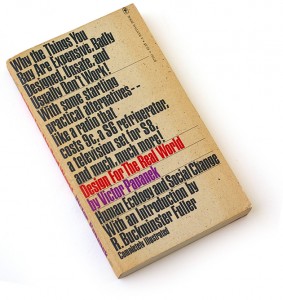 Why the Things You
Buy Are Expensive, Badly
Designed, Unsafe, and
Usually Don't Work!
With some startling
practical alternatives--
like a radio that
costs 9¢, a $6 refrigerator,
a television set for $8,
and much, much more!
Design For The Real World
by Victor Papanek
Human Ecology and Social Change
With an Introduction by
R. Buckminster Fuller
Completely Illustrated